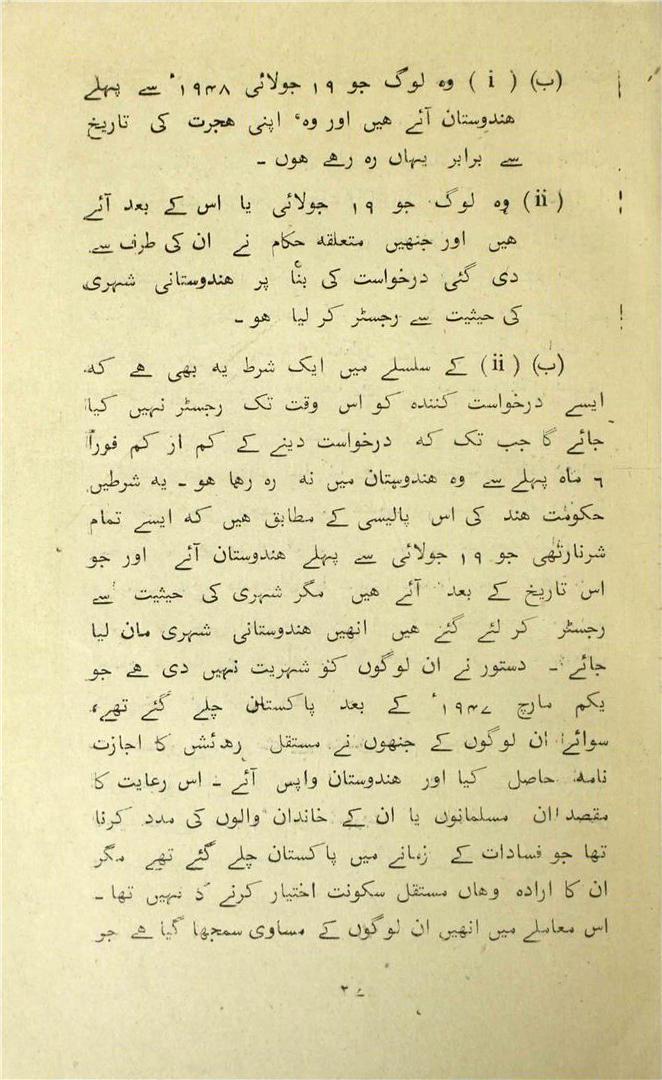 (ب) ( i ) وہ لوگ جو ۱۹ جولائی ۱۹۴۸ء سے پہلے
ھندوستان آئے ھیں اور وہ اپنی ھجرت کی تاریخ
سے برابر یہاں رہ رھے ھوں ۔
( ii ) وہ لوگ جو ۱۹ جولائی یا اس کے بعد آئے
ھیں اور جنھیں متعلقہ حکام نے ان کی طرف سے
دی گئی درخواست کی بنا پر ھندوستانی شہری
کی حیثیت سے رجسٹر کر لیا ھو ۔
(ب) ( ii ) کے سلسلے میں ایک شرط یہ بھی ھے کہ
ایسے درخواست کنندہ کو اس وقت تک رجسٹر نہیں کیا
جائے گا جب تک کہ درخواست دینے کے کم از کم فوراً
۶ ماہ پہلے سے وہ ھندوستان میں نہ رہ رھا ھو ۔ یہ شرطیں
حکومت ھند کی اس پالیسی کے مطابق ھیں کہ ایسے تمام
شرنارتھی جو ۱۹ جولائی سے پہلے ھندوستان آئے اور جو
اس تاریخ کے بعد آئے ھیں مگر شہری کی حیثیت سے
رجسٹر کر لئے گئے ھیں انھیں ھندوستانی شہری مان لیا
جائے ۔ دستور نے ان لوگوں کو شہریت نہیں دی ھے جو
یکم مارچ ۱۹۴۷ء کے بعد پاکستان چلے گئے تھے،
سوائے ان لوگوں کے جنھوں نے مستقل رھائش کا اجازت
نامہ حاصل کیا اور ھندوستان واپس آئے ۔ اس رعایت کا
مقصد ان مسلمانوں یا ان کے خاندان والوں کی مدد کرنا
تھا جو فسادات کے زمانے میں پاکستان چلے گئے تھے مگر
ان کا ارادہ وھاں مستقل سکونت اختیار کرنے کا نہیں تھا ۔
اس معاملے میں انھیں ان لوگوں کے مساوی سمجھا گیا ھے جو
۲۷